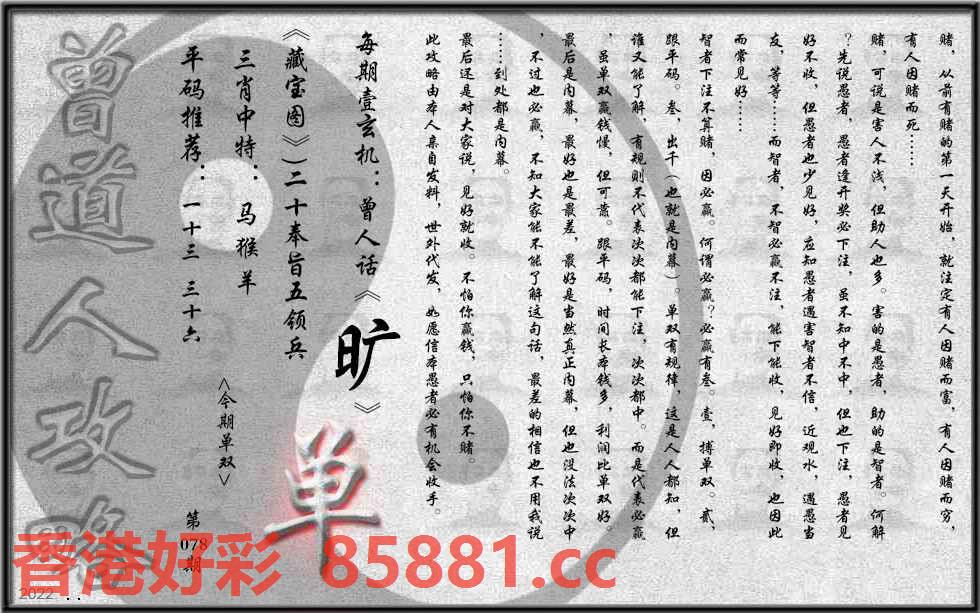 赌，从前有赌的第一天开始，就注定有人因赌而富，有人因赌而穷，
有人因赌而死……
赌，可说是害人不浅，但助人也多。害的是愚者，助的是智者。何解
？先说愚者，愚者逢开奖必下注，虽不知中不中，但也下注，愚者见
好不收，但愚者也少见好，应知愚者遇害智者不信，近观水，遇愚当
友，等等……而智者，不智必赢不注，能下能收，见好即收，也因此
而常见好……
智者下注不算赌，因必赢。何谓必赢？必赢有叁。壹，搏单双。贰，
跟平码。叁，出千（也就是内幕）。单双有规律，这是人人都知，但
谁又能了解，有规则不代表次次都能下注，次次都中。而是代表必赢
，虽单双赢钱慢，但可靠。跟平码，时间长本钱多，利润比单双好。
最后是内幕，最好也是最差，最好是当然真正内幕，但也没法次次中
，不过也必赢，不知大家能不能了解这句话，最差的相信也不用我说
……到处都是内幕。
最后还是对大家说，见好就收。不怕你赢钱，只怕你不赌。
此攻略由本人亲自发料，世外代发，如愿信本愚者必有机会收手。
每期壹玄机：曾人话《旷》
《藏宝图》(二十奉旨五领兵
三肖中特：马猴羊
平码推荐：一十三 三十六
<今期单双>
单
第078期
曾道人攻略
香港好彩 85881.cc
2022